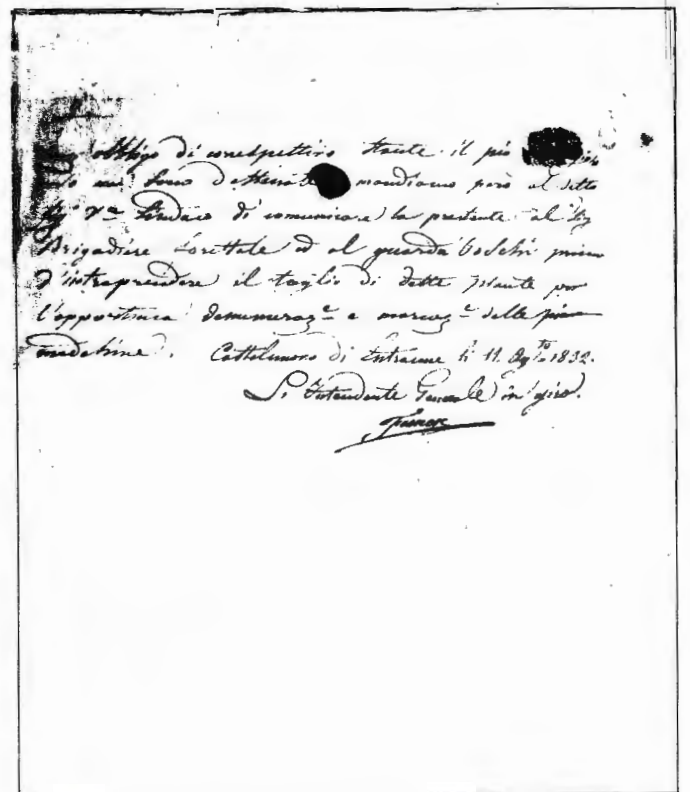 obbligo di correspettivo stante il pio
sono destinate mandiamo però al detto
Sig.r V.ce Sindaco di comunicare la presente al Sig.
Brigadiere Forestale ed al guarda boschi prima
d'intraprendere il taglio di dette piante per
l'opportuna denumeraz.e e marcaz.e delle piante
medesime. di Entraque li 11. Ag.to 1832.
L'Intendente Generale in giro.